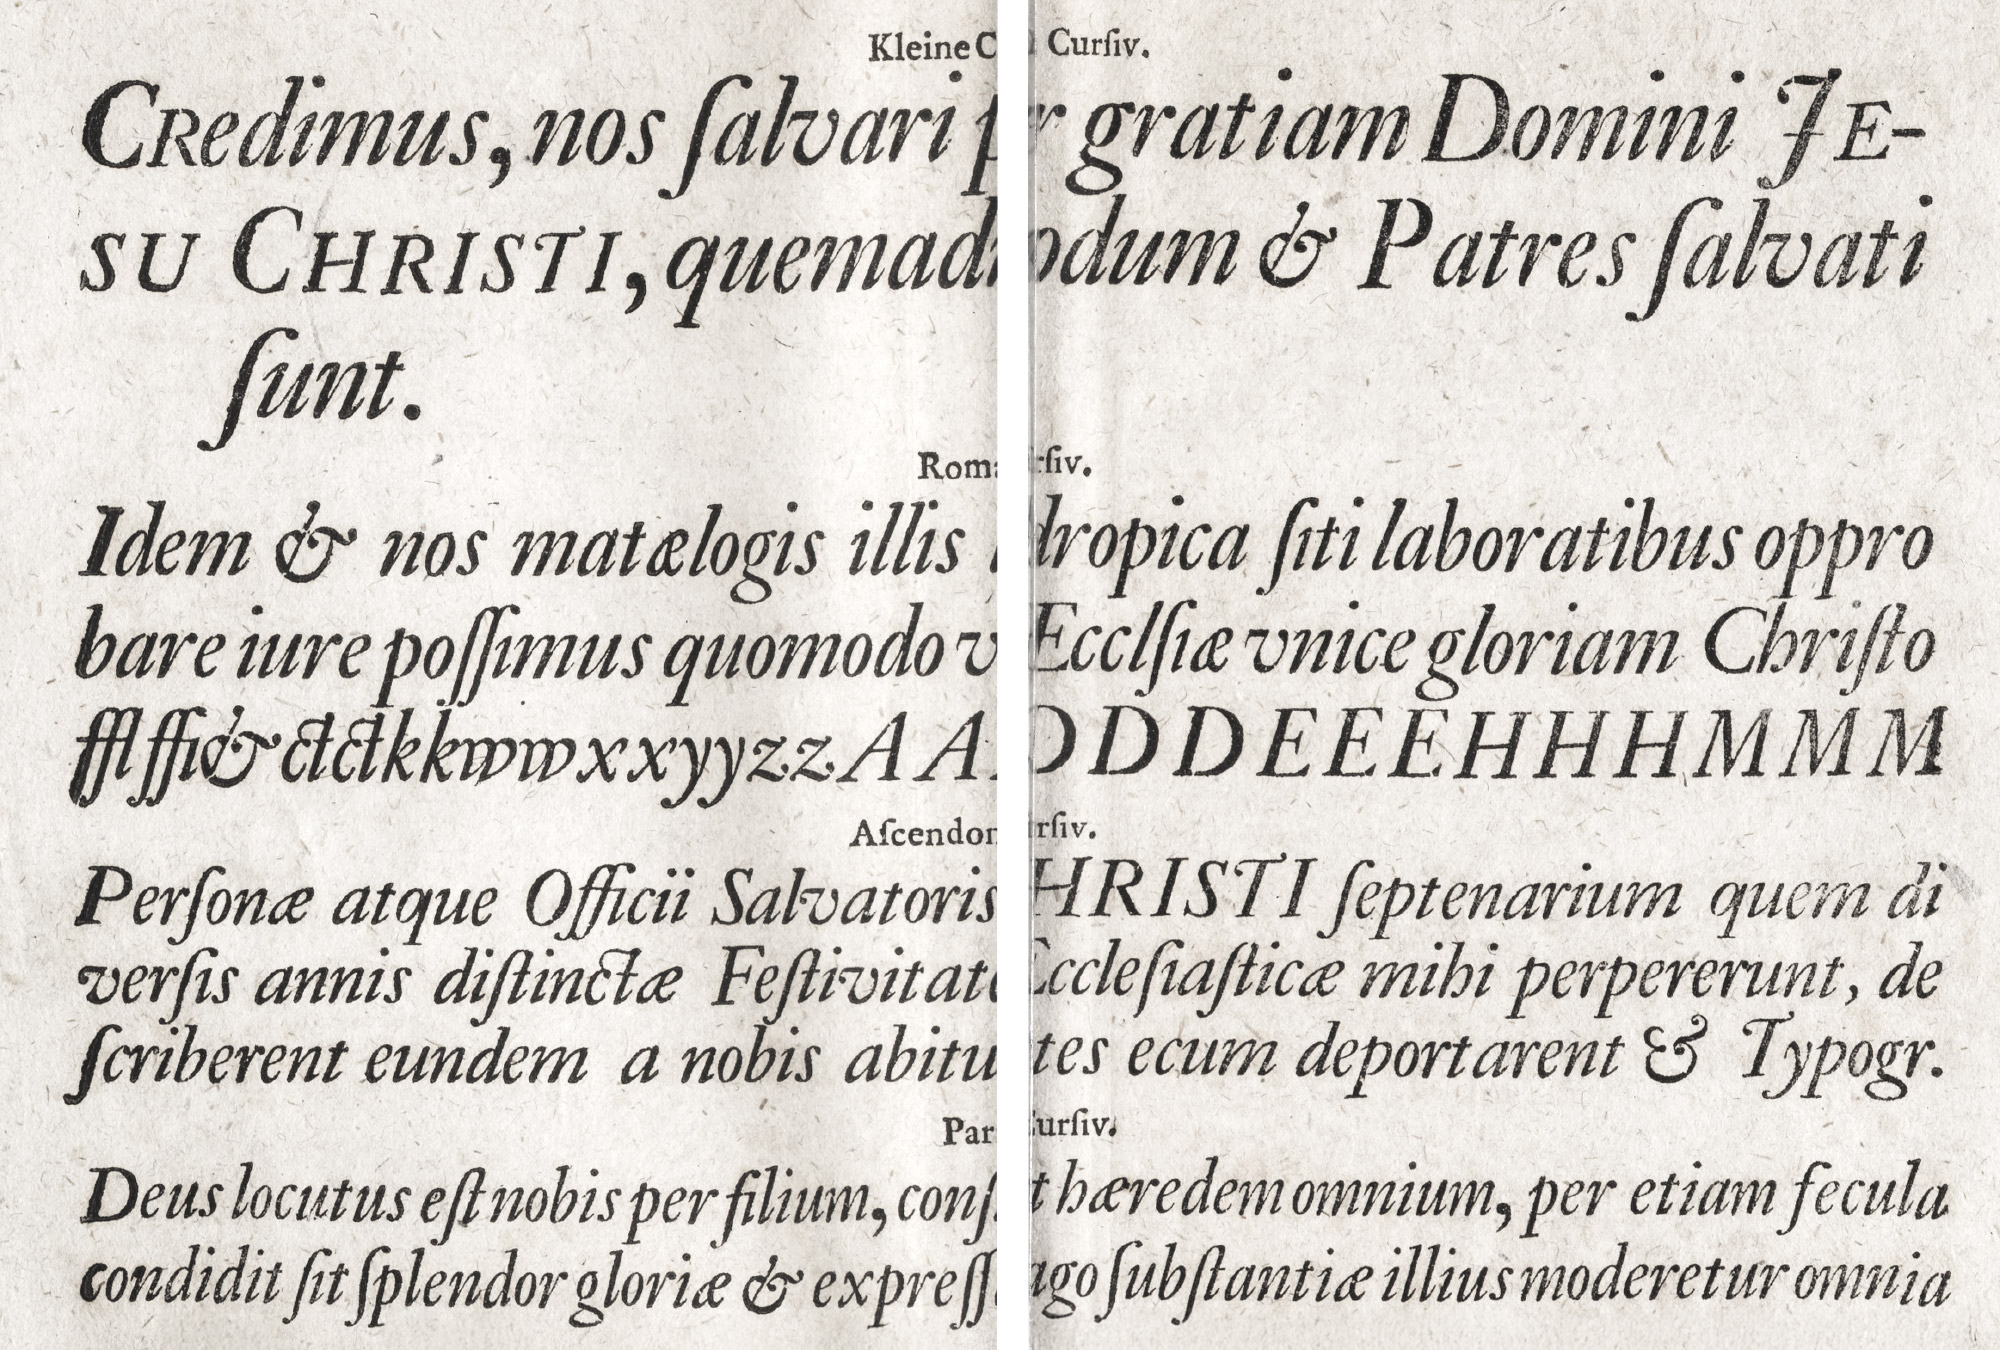 Kleine Curſiv.
CRedimus, nos ſalvari per gratiam Domini JE-
SU CHRISTI, quemadmodum & Patres ſalvati
ſunt.
Curſiv.
Idem & nos matælogis illis hydropica ſiti laboratibus oppro
bare iure poſſimus quomodo Ecclſiæ vnice gloriam Chriſto
ffl ffi & ct ct k k w w x x y y z z A A D D D E E E H H H M M M
Aſcendon Curſiv.
Perſonæ atque Officii Salvatoris CHRISTI ſeptenarium quem di
verſis annis diſtinctæ Feſtivitates Eccleſiaſticæ mihi perpererunt, de
ſcriberent eundem a nobis abitu tes ecum deportarent & Typogr.
Curſiv.
Deus locutus eſt nobis per filium, hæredem omnium, per etiam fecula
condidit ſit ſplendor gloriæ & ſubſtantiæ illius moderetur omnia